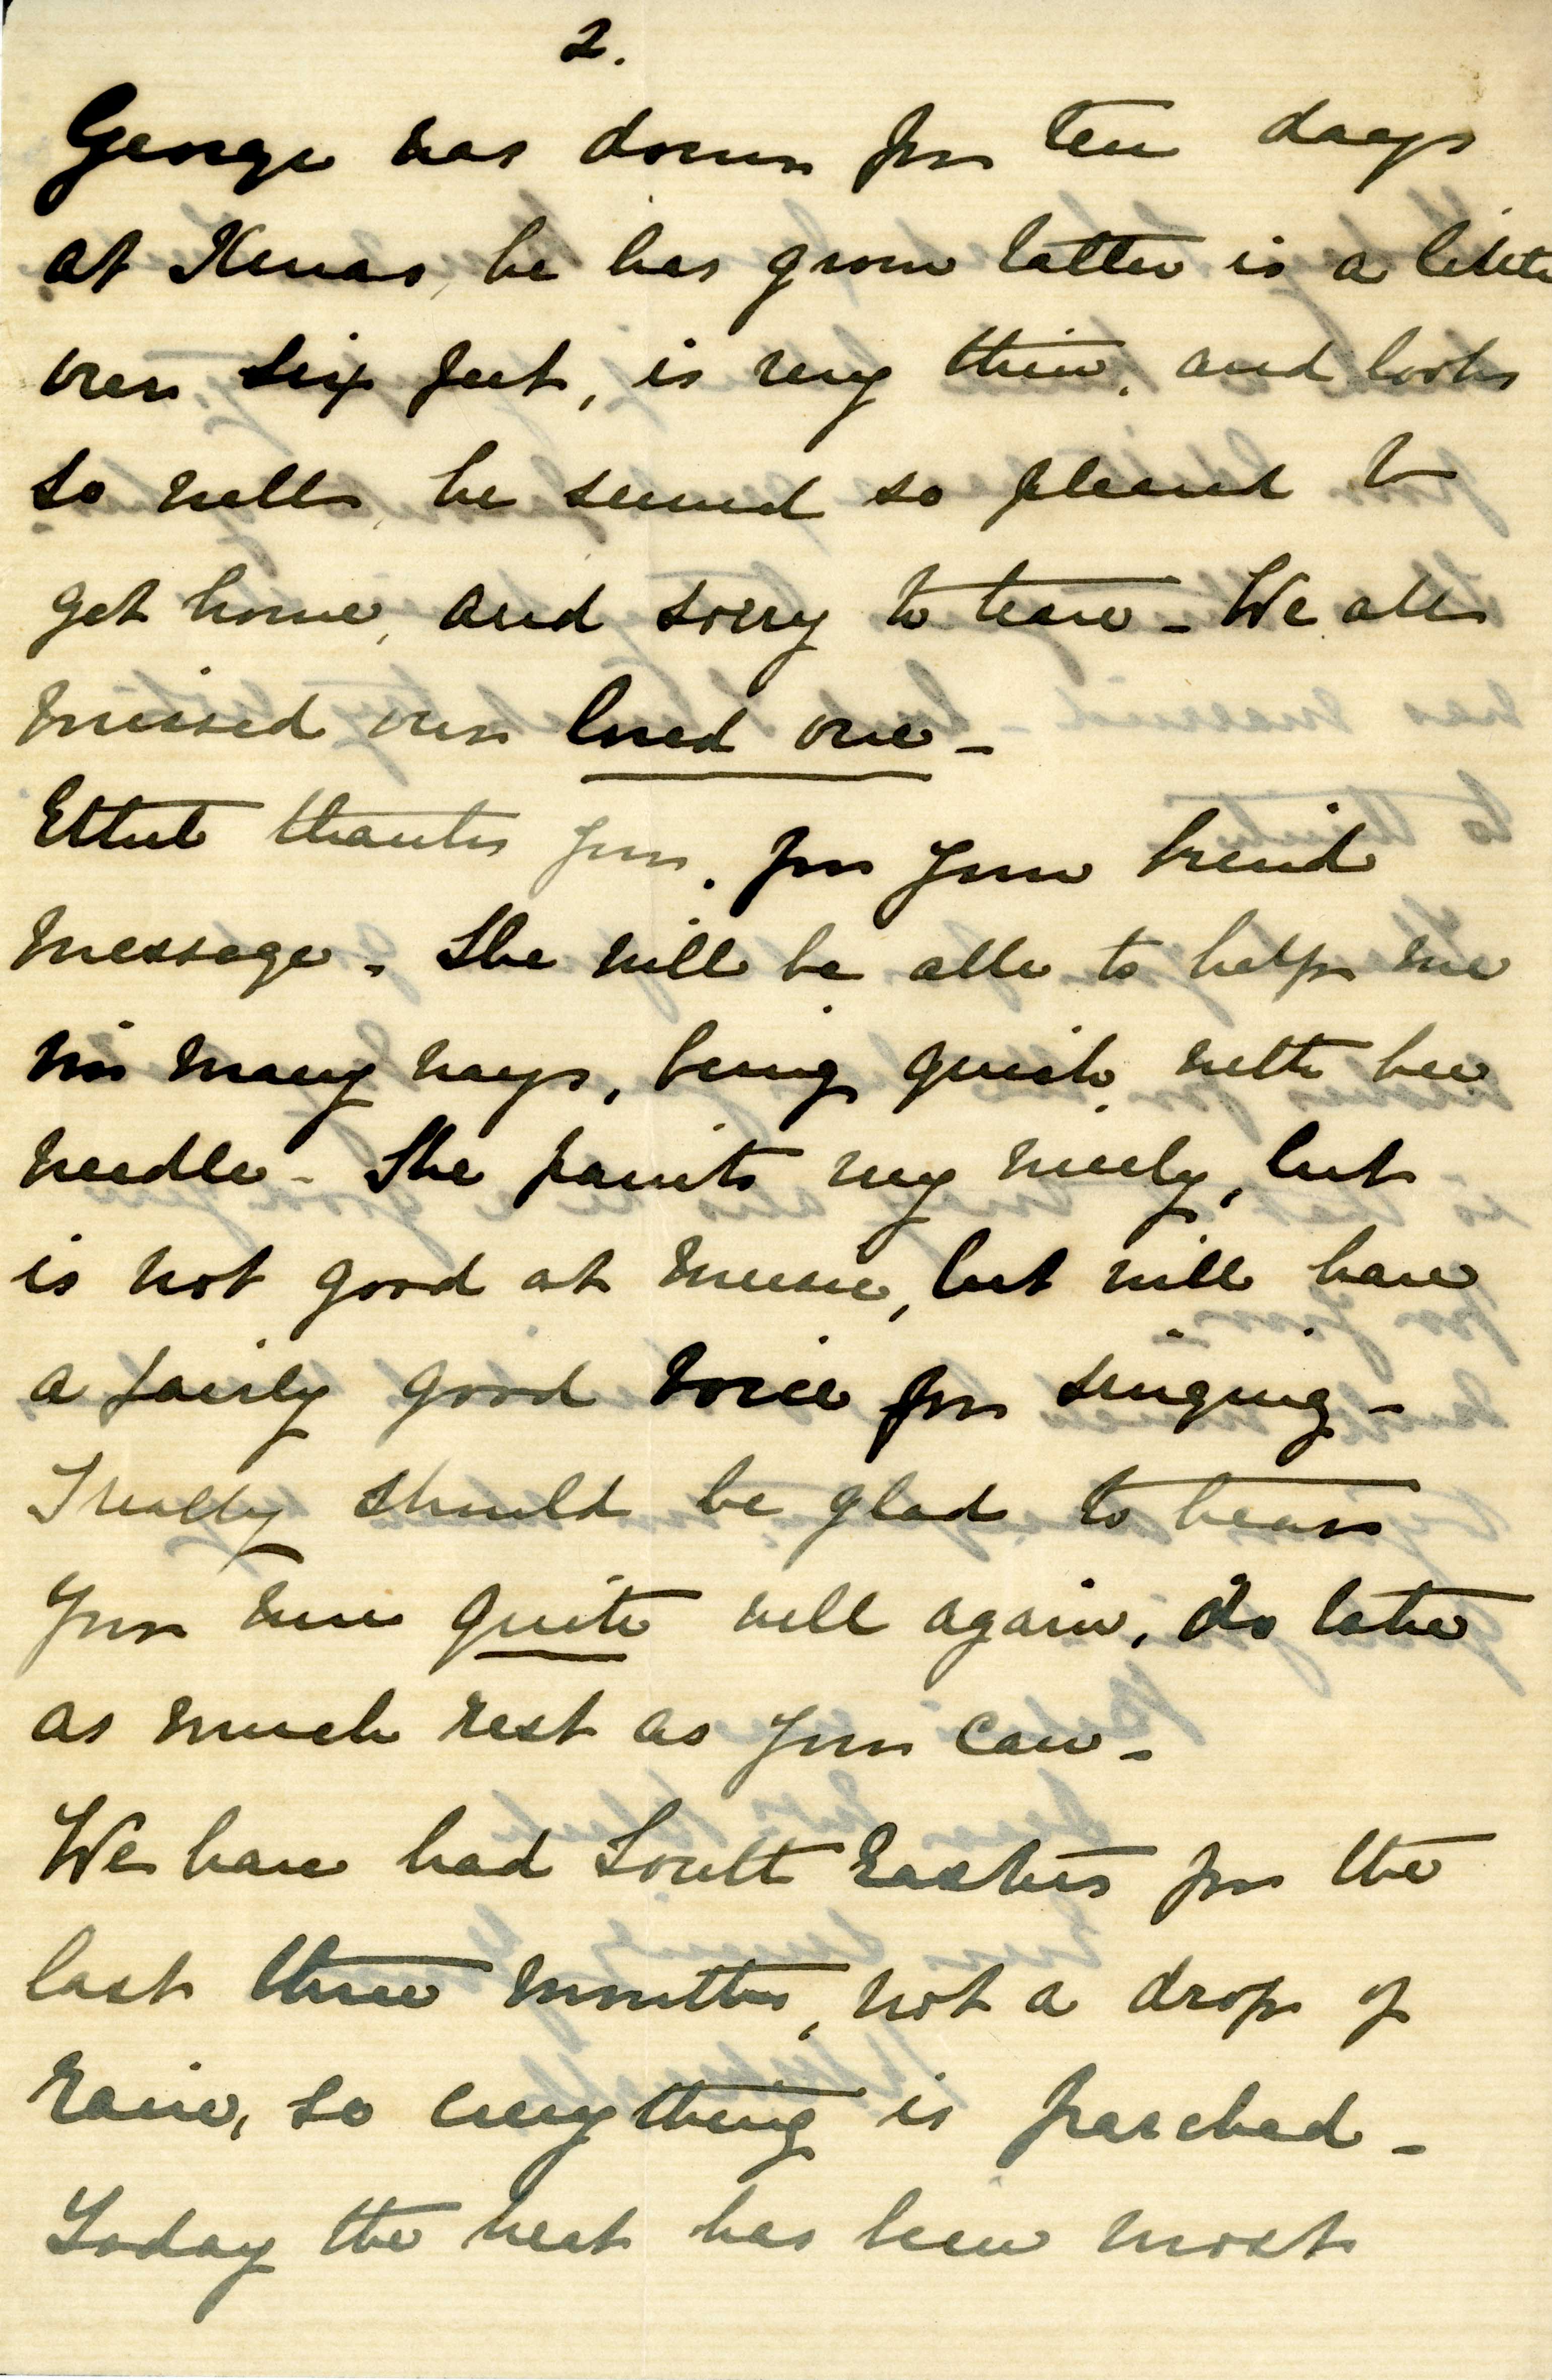 2.
George was down for ten days
at Xmas, he has grown taller is a little
over six feet, is very thin, and looks
so well, he seemed so pleased to
get home, and sorry to leave - We all
missed our loved one -
Ethel thanks you, for your kind
message. She will be able to help me
in many ways, being quick, with her
needle - She paints very nicely, but
is not good at music, but will have
a fairly good voice for singing -
I really should be glad to hear
you were quite well again, do take
as much rest as you can -
We have had South Easters for the
last three months, not a drop of
rain, so everything is parched -
Today the heat has been most